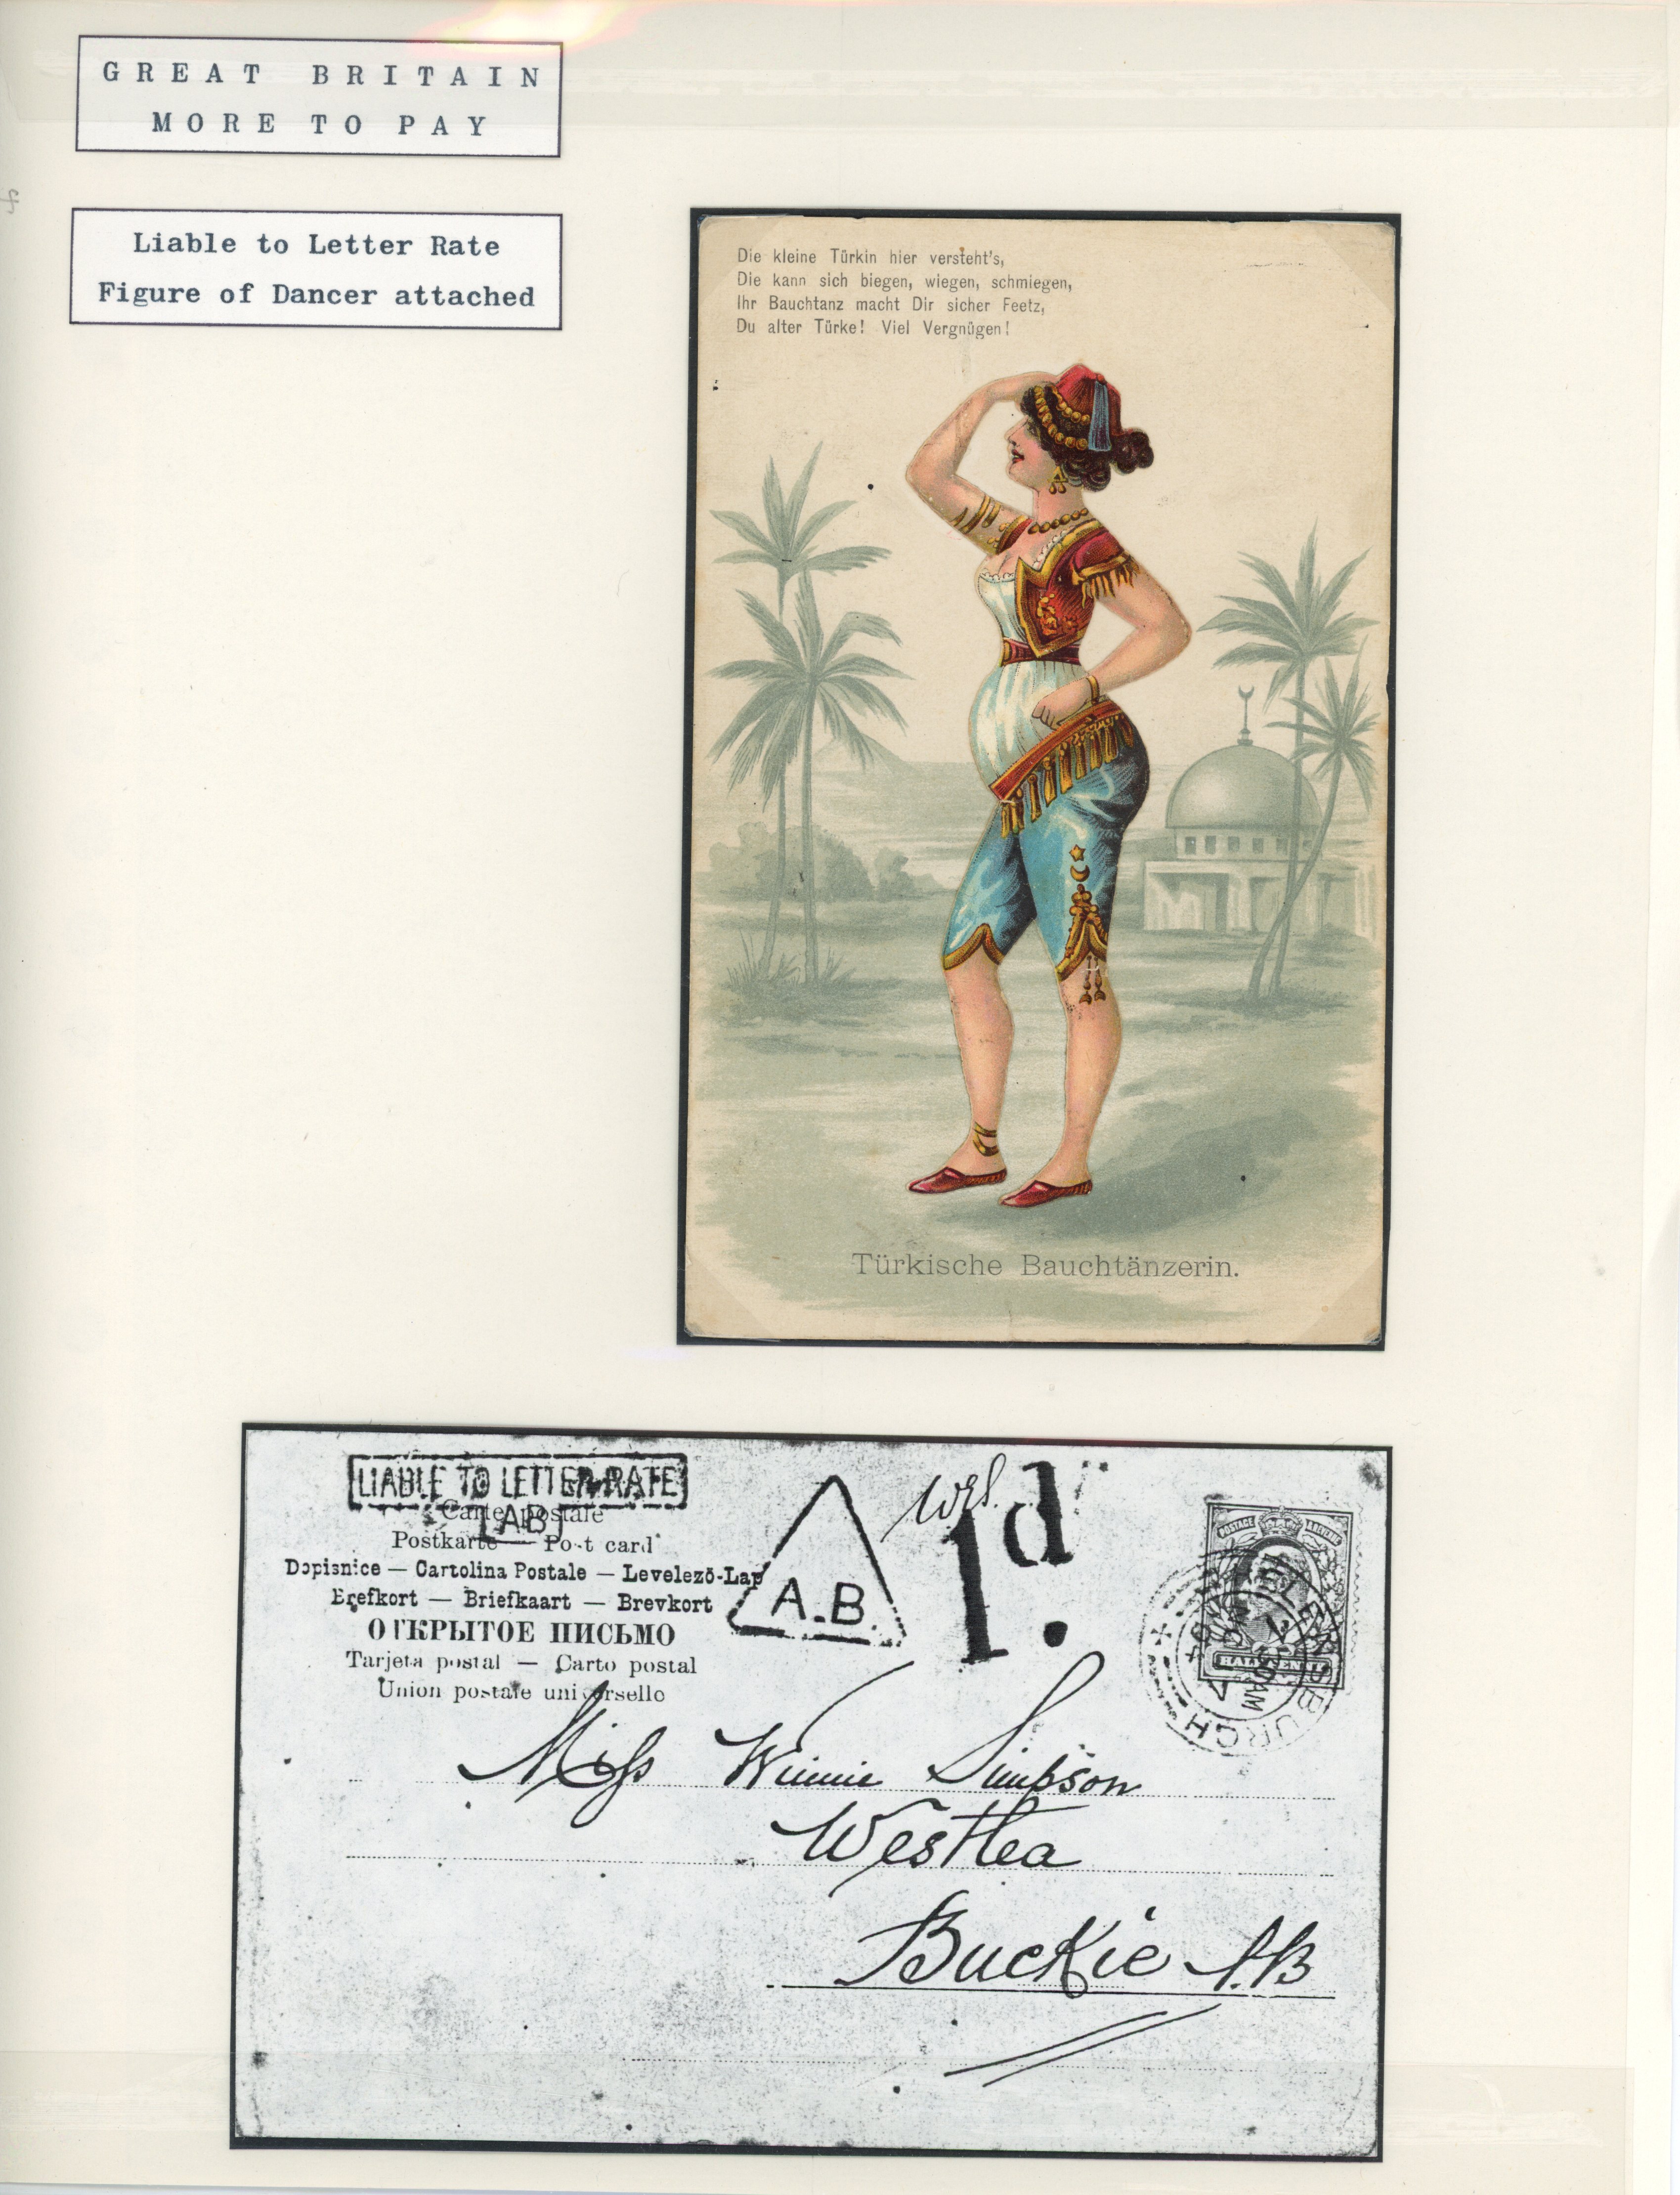 GREAT BRITAIN
MORE TO PAY
Liable to Letter Rate
Figure of Dancer attached
Die kleine Türkin hier versteht's,
Die kann sich biegen, wiegen, schmiegen,
Ihr Bauchtanz macht Dir sicher Feetz,
Du alter Türke! Viel Vergnügen!
Türkische Bauchtänzerin.
LIABLE TO LETTER RATE
[AB]
Carte postale
Postkarte — Post card
Dopisnice — Cartolina Postale — Levelező-Lap
Brefkort — Briefkaart — Brevkort
ОТКРЫТОЕ ПИСЬМО
Tarjeta postal — Carto postal
Union postale universelle
A.B.
1d.
POSTAGE
Miss Winnie Simpson
Westlea
Buckie N.B